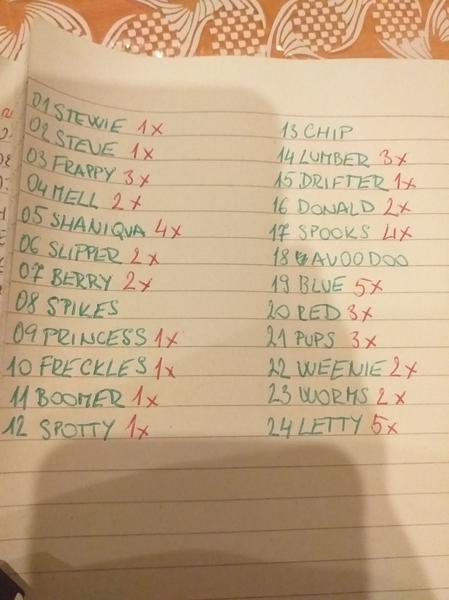 01 STEWIE 1x
02 STEVE 1x
03 FRAPPY 3x
04 MELL 2x
05 SHANIQUA 4x
06 SLIPPER 2x
07 BERRY 2x
08 SPIKES
09 PRINCESS 1x
10 FRECKLES 1x
11 BOOMER 1x
12 SPOTTY 1x
13 CHIP
14 LUMBER 3x
15 DRIFTER 1x
16 DONALD 2x
17 SPOOKS 4x
18 AVOODOO
19 BLUE 5x
20 RED 3x
21 PUPS 3x
22 WEENIE 2x
23 WORMS 2x
24 LETTY 5x